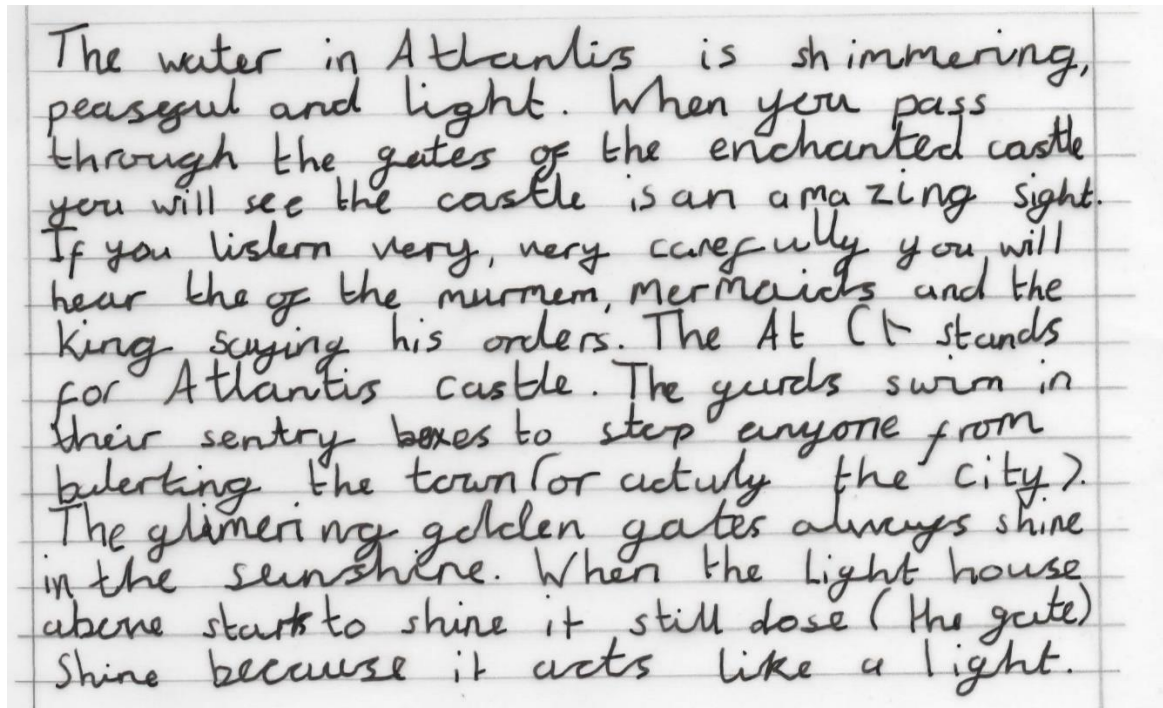 The water in Atlantis is shimmering,
peaseful and light. When you pass
through the gates of the enchanted castle
you will see the castle is an amazing sight.
If you listern very, very carefully you will
hear the of the murmem, mermaids and the
King saying his orders. The At Ct stands
for Atlantis castle. The gurds swim in
their sentry boxes to stop anyone from
the town (or actuly the city).
The glimering golden gates always shine
in the sunshine. When the light house
above starts to shine it still dose (the gate)
Shine because it acts like a light.